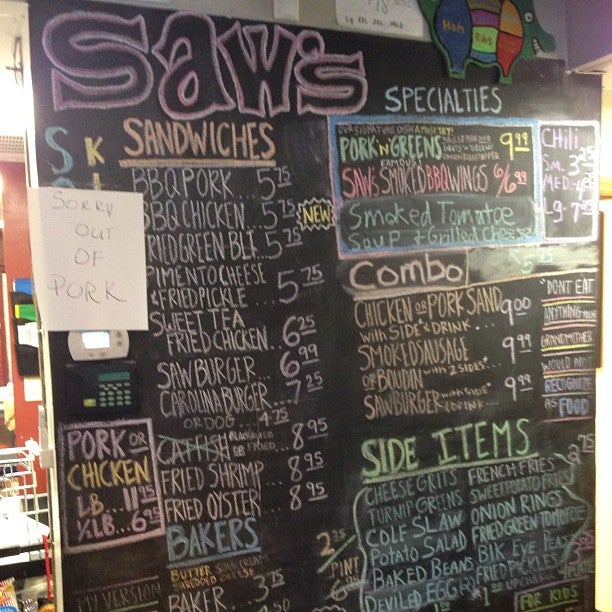 SAW'S
SANDWICHES
BBQ PORK... 5 75
BBQ CHICKEN.. 5 75
FRIED GREEN BLT.. 5 75
PIMENTO CHEESE
& FRIED PICKLE... 5 75
SWEET TEA
FRIED CHICKEN... 6 25
SAW BURGER... 6 99
CAROLINA BURGER... 7 25
OR DOG... 4 75
CATFISH OR FRIED... 8 95
FRIED SHRIMP... 8 95
FRIED OYSTER... 8 95
NEW
SORRY
OUT
OF
PORK
PORK OR
CHICKEN
LB... 11 95
½ LB... 6 95
BAKERS
BUTTER SOUR CREAM
CHEESE
BAKER... 3 75
MY VERSION
PINT
Ham
Ribs
SPECIALTIES
OUR SIGNATURE DISH A MUST TRY!
PORK 'N' GREENS 9 99
FAMOUS
SAW'S SMOKED BBQ WINGS 6/6 99
Smoked Tomatoe
Soup + Grilled Cheese
5
CHILI
SM. 3 25
MED.
LG. 7
COMBO
CHICKEN OR PORK SAND 9 00
WITH SIDE & DRINK...
SMOKED SAUSAGE
OR BOUDIN WITH 2 SIDES 9 99
SAW BURGER WITH SIDE & DRINK... 9 99
"DONT EAT
ANYTHING YOUR
GRANDMOTHER
WOULD NOT
RECOGNIZE
AS FOOD
SIDE ITEMS 2 75
CHEESE GRITS FRENCH FRIES
TURNIP GREENS SWEET POTATO FRIES
COLE SLAW ONION RINGS
POTATO SALAD FRIED GREEN TOMATOE
BAKED BEANS BLK EYE PEAS
DEVILED EGG FRIED PICKLES
FOR KIDS